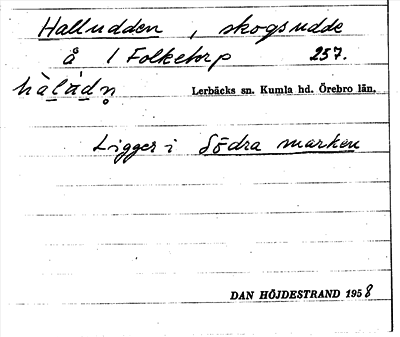 Halludden, skogsudde
å 1 Folketorp 257.
Lerbäcks sn. Kumla hd. Örebro län.
Ligger i Södra marken
DAN HÖJDESTRAND 1958